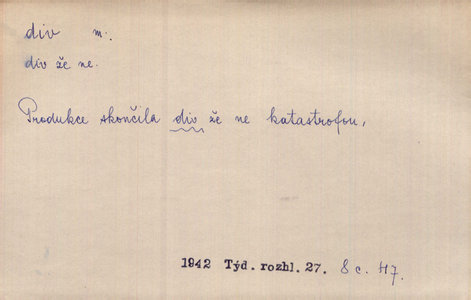 div m.
div že ne.
Produkce skončila div že ne katastrofou,
1942 Týd. rozhl. 27. 8 c. 47.